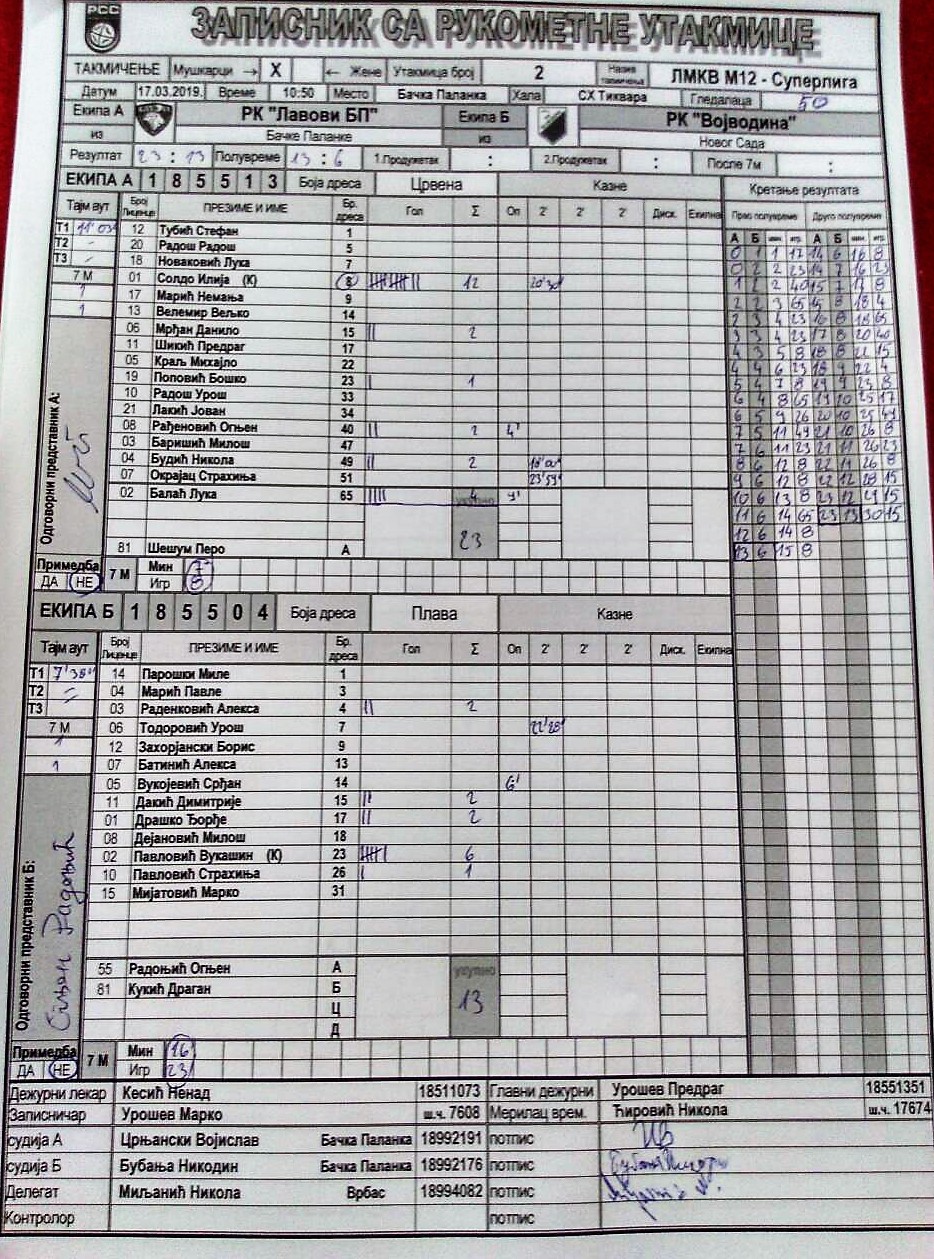 РСС
ЗАПИСНИК СА РУКОМЕТНЕ УТАКМИЦЕ
ТАКМИЧЕЊЕ Мушкарци → X ← Жене Утакмица број 2 Назив такмичења ЛМКВ М12 - Суперлига
Датум 17.03.2019. Време 10:50 Место Бачка Паланка Хала СХ Тиквара Гледалаца 50
Екипа А РК "Лавови БП" Екипа Б РК "Војводина"
из Бачке Паланке из Новог Сада
Резултат 23 : 13 Полувреме 13 : 6 1.Продужетак : 2.Продужетак : После 7м :
ЕКИПА А 1 8 5 5 1 3 Боја дреса Црвена Казне Кретање резултата
Тајм аут Број Лиценце ПРЕЗИМЕ И ИМЕ Бр. дреса Гол Σ Оп 2' 2' 2' Диск. Екипна Прво полувреме Друго полувреме
А Б мин. игр. А Б мин. игр.
Т1 12 Тубић Стефан 1
Т2 - 20 Радош Радош 5
Т3 - 18 Новаковић Лука 7
7 М 01 Солдо Илија (К) 8 12 20'30"
1 17 Марић Немања 9
1 13 Велемир Вељко 14
06 Мрђан Данило 15 || 2
11 Шикић Предраг 17
05 Краљ Михајло 22
19 Поповић Бошко 23 | 1
10 Радош Урош 33
21 Лакић Јован 34
08 Рађеновић Огњен 40 || 2 4'
03 Баришић Милош 47
04 Будић Никола 49 || 2
07 Окрајац Страхиња 51 23'59"
02 Балаћ Лука 65 |||| 4 9'
укупно 23
81 Шешум Перо А
Одговорни представник А:
0 1 1 17 14 6 16 8
0 2 2 23 14 7 16 23
1 2 2 40 15 7 17 8
2 2 3 65 15 8 18 4
2 3 4 23 16 8 18 65
3 3 4 23 17 8 20 40
4 3 5 8 18 8 22 15
4 4 6 23 18 9 22 4
5 4 7 8 19 9 23 8
6 4 8 65 19 10 25 17
6 5 9 26 20 10 25 49
7 5 11 49 21 10 26 8
7 6 11 23 21 11 26 23
8 6 12 8 22 11 26 8
9 6 12 8 22 12 28 15
10 6 13 8 23 12 29 15
11 6 14 65 23 13 30 15
12 6 14 8
13 6 15 8
Примедба 7 М Мин 7
ДА НЕ Игр 8
ЕКИПА Б 1 8 5 5 0 4 Боја дреса Плава Казне
Тајм аут Број Лиценце ПРЕЗИМЕ И ИМЕ Бр. дреса Гол Σ Оп 2' 2' 2' Диск. Екипна
Т1 7'38" 14 Парошки Миле 1
Т2 - 04 Марић Павле 3
Т3 - 03 Раденковић Алекса 4 || 2
7 М 06 Тодоровић Урош 7 22'28"
1 12 Захорјански Борис 9
1 07 Батинић Алекса 13
05 Вукојевић Срђан 14 6'
11 Дакић Димитрије 15 || 2
01 Драшко Ђорђе 17 || 2
08 Дејановић Милош 18
02 Павловић Вукашин (К) 23 6
10 Павловић Страхиња 26 | 1
15 Мијатовић Марко 31
55 Радоњић Огњен А укупно
81 Кукић Драган Б 13
Ц
Д
Одговорни представник Б:
Примедба 7 М Мин 16
ДА НЕ Игр 23
Дежурни лекар Кесић Ненад 18511073 Главни дежурни Урошев Предраг 18551351
Записничар Урошев Марко ш.ч. 7608 Мерилац врем. Ћировић Никола ш.ч. 17674
судија А Црњански Војислав Бачка Паланка 18992191 потпис
судија Б Бубања Никодин Бачка Паланка 18992176 потпис
Делегат Миљанић Никола Врбас 18994082 потпис
Контролор потпис